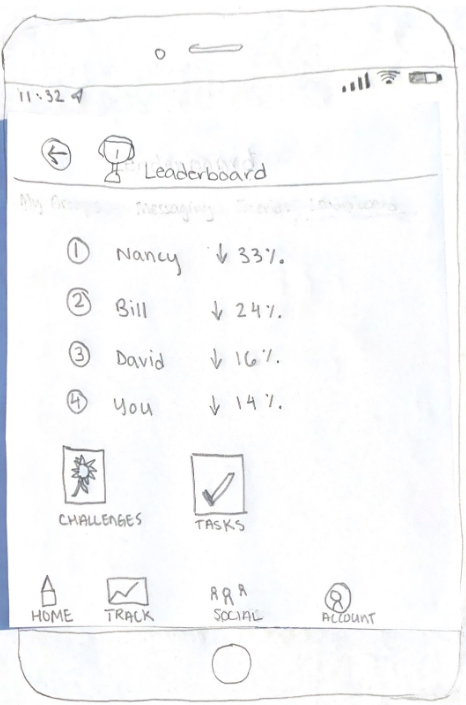 11:32
1
Leaderboard
My Groups Messaging Friends Leaderboard
1 Nancy ↓ 33%.
2 Bill ↓ 24%.
3 David ↓ 16%.
4 You ↓ 14%.
CHALLENGES TASKS
HOME TRACK SOCIAL ACCOUNT